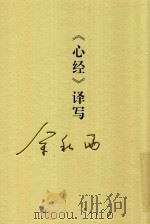 《心经》译写
余秋雨